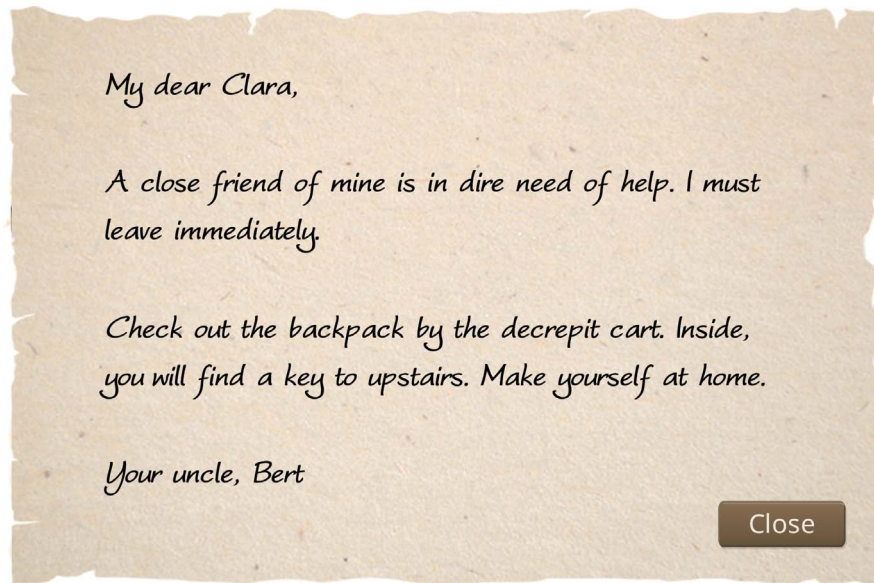 My dear Clara,
A close friend of mine is in dire need of help. I must
leave immediately.
Check out the backpack by the decrepit cart. Inside,
you will find a key to upstairs. Make yourself at home.
Your uncle, Bert
Close